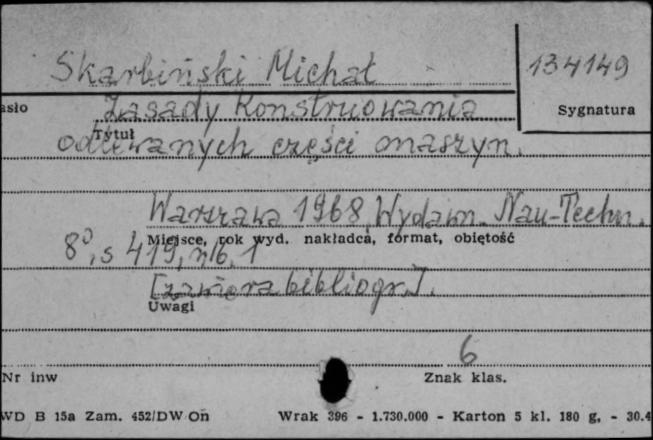 Skarbiński Michał
134149
asło
Zasady Konstruowania
Sygnatura
Tytuł
odlewanych części maszyn.
Warszawa 1968 Wydawn. Nau-Techn.
Miejsce, rok wyd. nakładca, format, objętość
8°, s 419, nlb. 1
[zawiera bibliogr.].
Uwagi
6
Nr inw
Znak klas.
WD B 15a Zam. 452/DW On
Wrak 396 - 1.730.000 - Karton 5 kl. 180 g, - 30.4